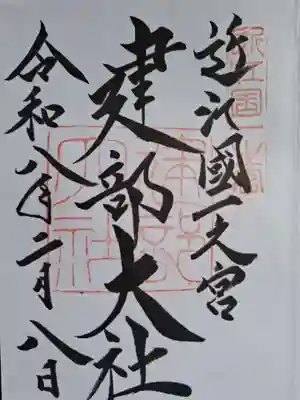 近江國一之宮
建部大社
令和八年二月八日